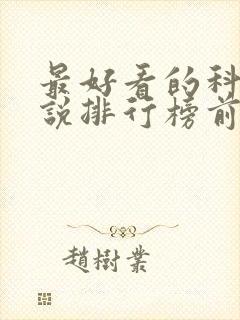 最好看的科
說排行榜前
趙樹業